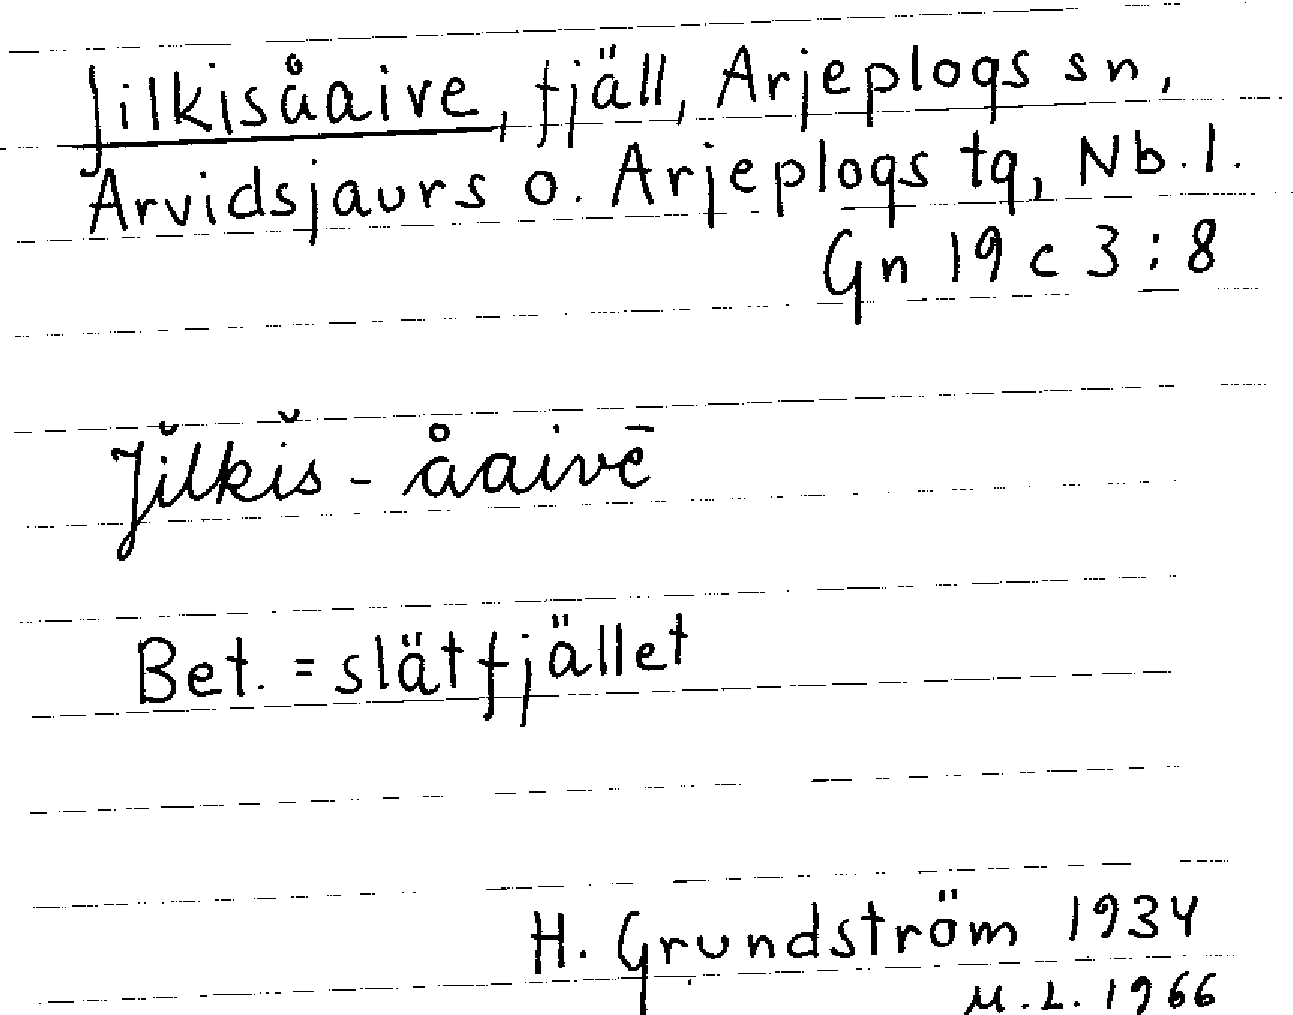 Jilkisåaive, fjäll, Arjeplogs sn,
Arvidsjaurs o. Arjeplogs tg, Nb. l.
Gn 19 c 3 : 8
Jĭlkĭs - åaivē
Bet. = slätfjället
H. Grundström 1934
M. L. 1966